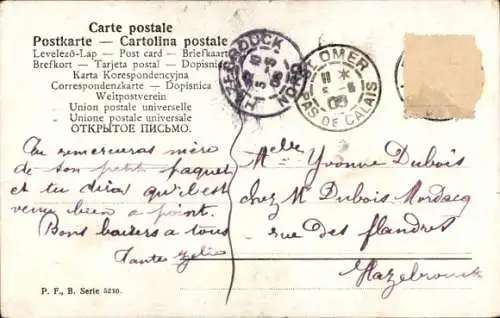 Carte postale
Postkarte — Cartolina postale
Levelező-Lap — Post card — Briefkaart
Brefkort — Tarjeta postal — Dopisnice
Karta Korespondencyjna
Correspondenzkarte — Dopisnica
Weltpostverein
Union postale universelle
Unione postale universale
ОТКРЫТОЕ ПИСЬМО.
HAZEBROUCK
NORD
ST OMER
PAS DE CALAIS
Tu remercieras mère
de son petit paquet
et tu diras qu'il est
venu bien a point.
Bons baisers a tous
Tante Zélie
Melle Yvonne Dubois
chez Mr Dubois-Mordacq
rue des flandres
Hazebrouck
P. F., B. Serie 5230.